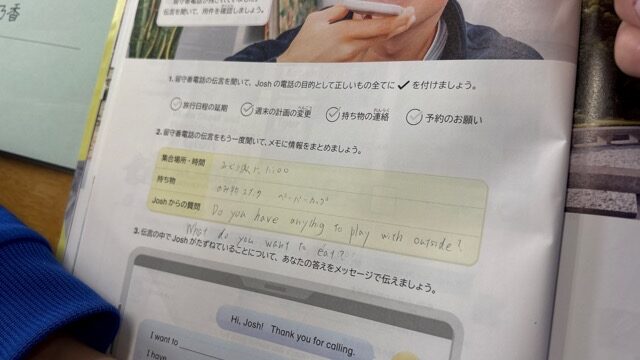 乃香
伝言を聞いて、用件を確認しましょう。
1. 留守番電話の伝言を聞いて、Joshの電話の目的として正しいもの全てに✓を付けましょう。
旅行日程の延期 週末の計画の変更 持ち物の連絡 予約のお願い
2. 留守番電話の伝言をもう一度聞いて、メモに情報をまとめましょう。
集合場所・時間 1:00
持ち物
Joshからの質問 Do you have anythig to play with outside?
What do you want to eat?
3. 伝言の中でJoshがたずねていることについて、あなたの答えをメッセージで伝えましょう。
Hi, Josh! Thank you for calling.
I want to
I have